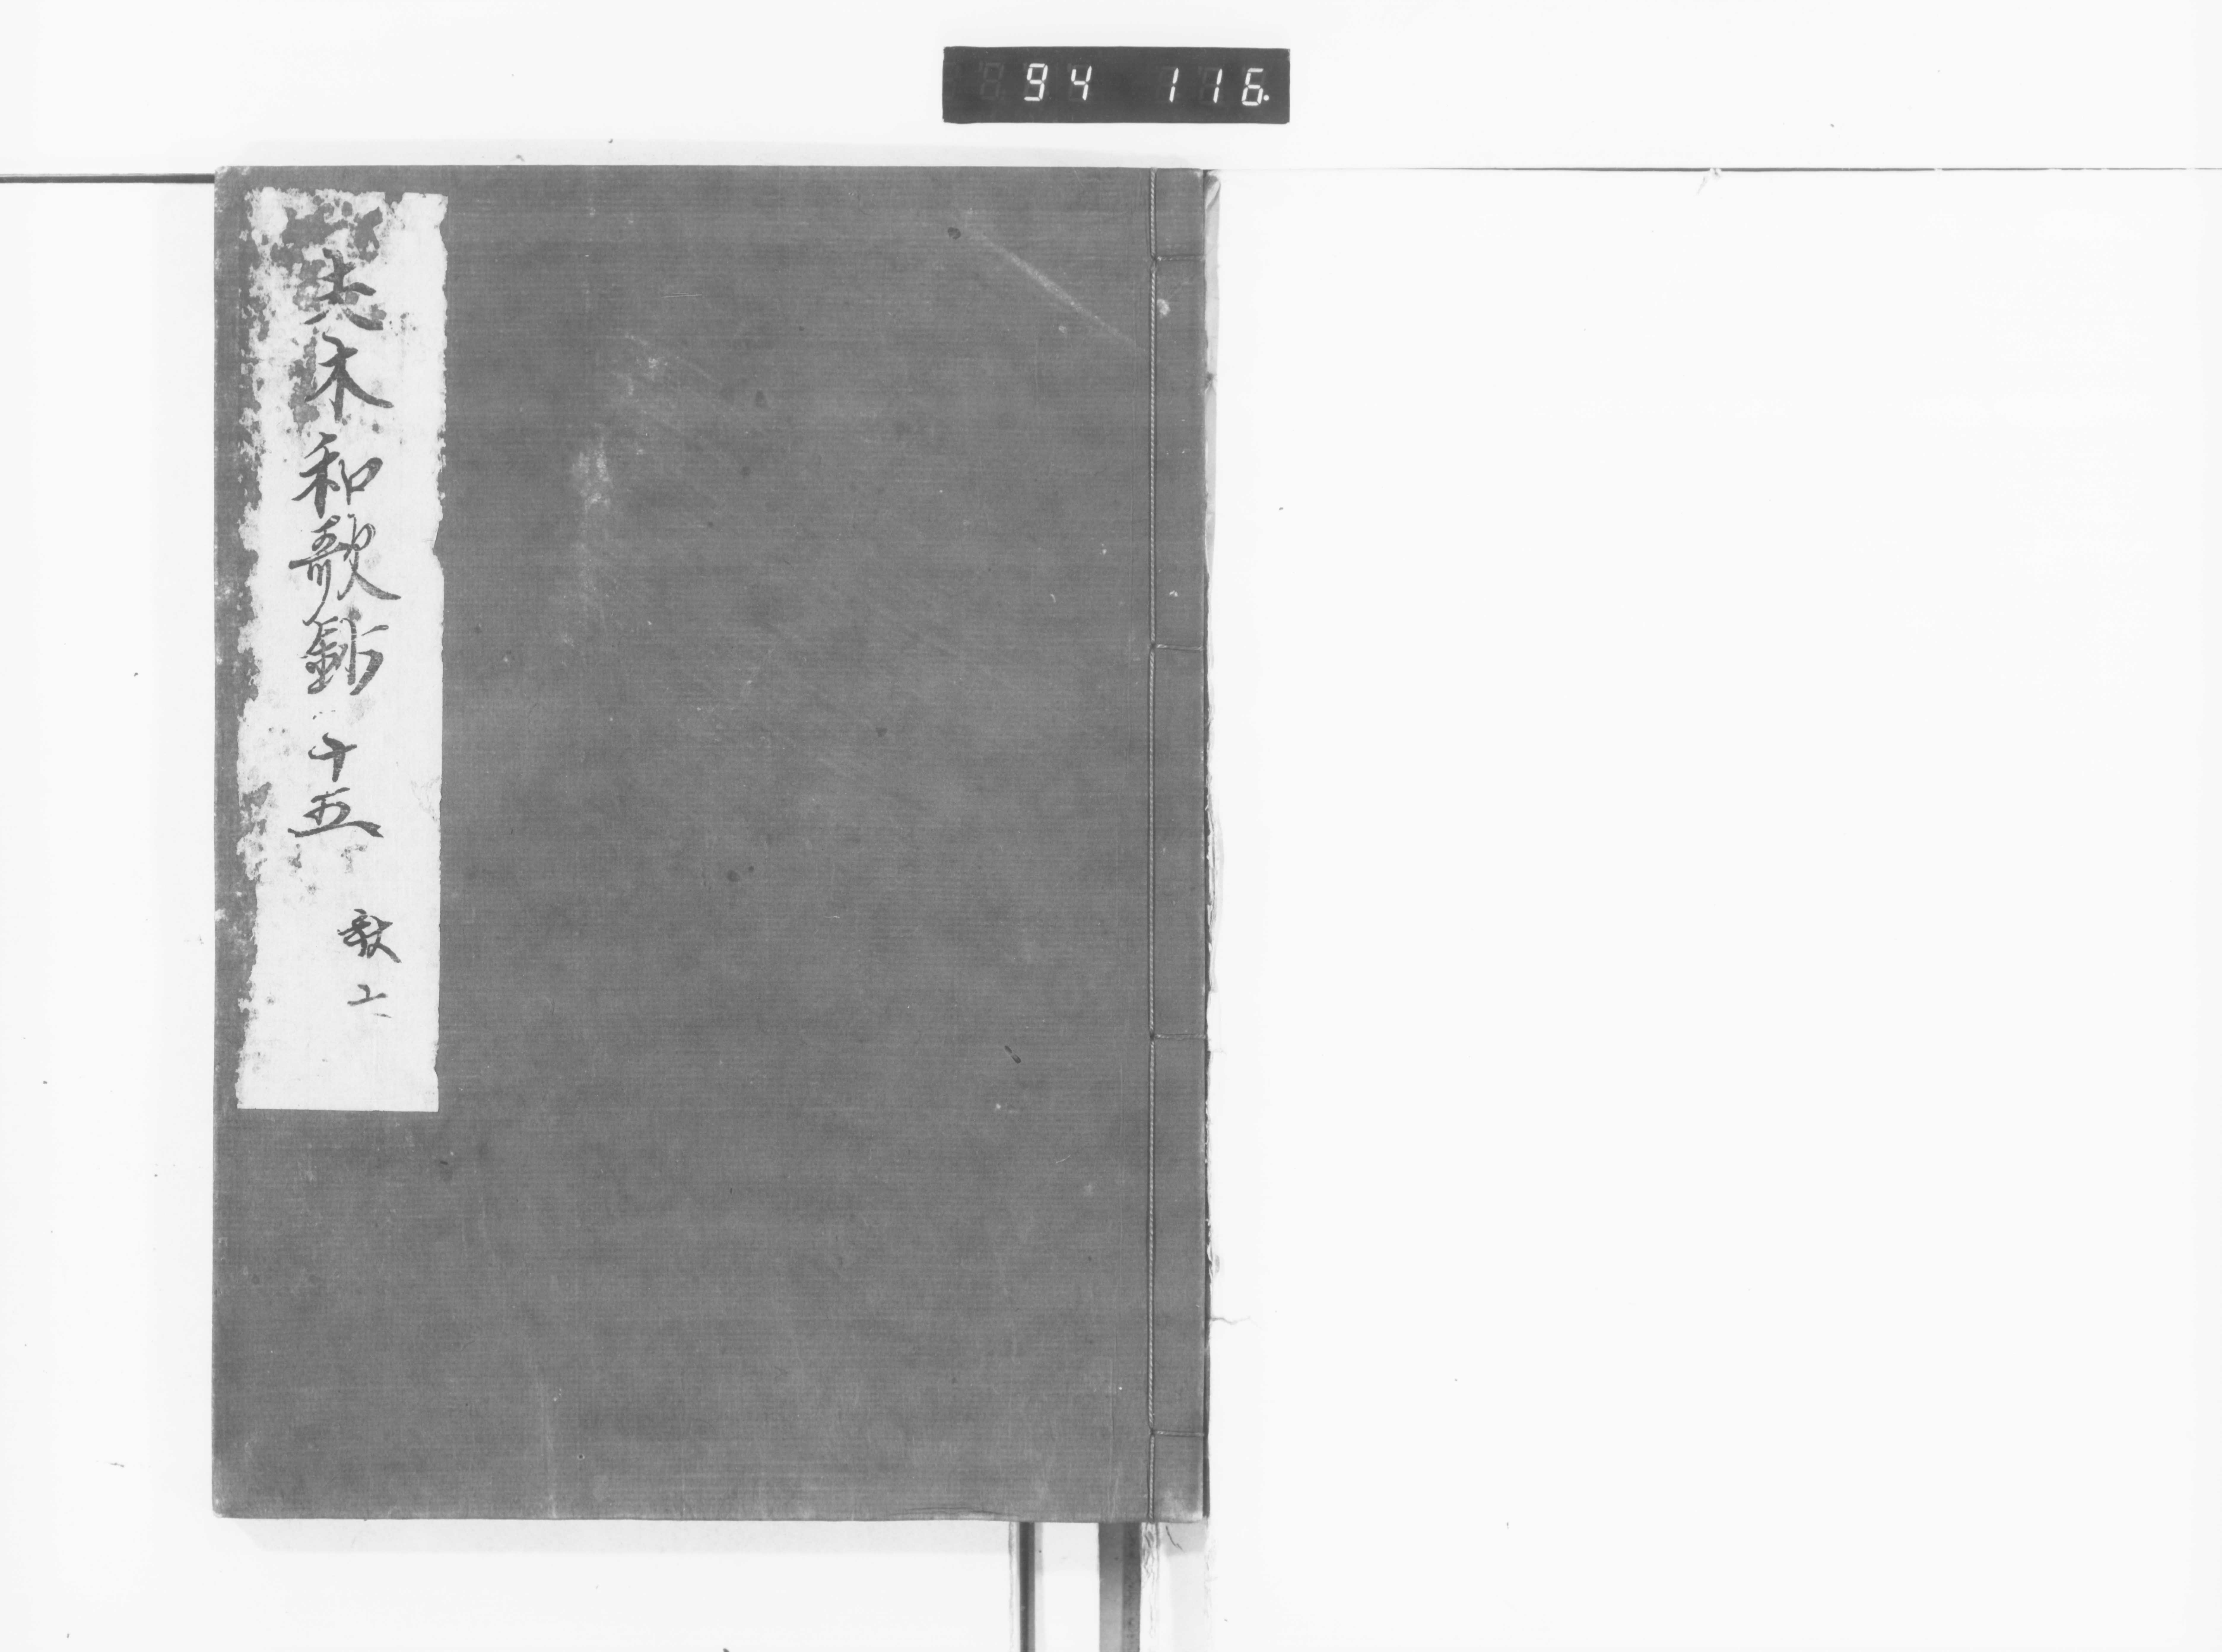 94 116.
夫木和歌鈔 十五
秋六